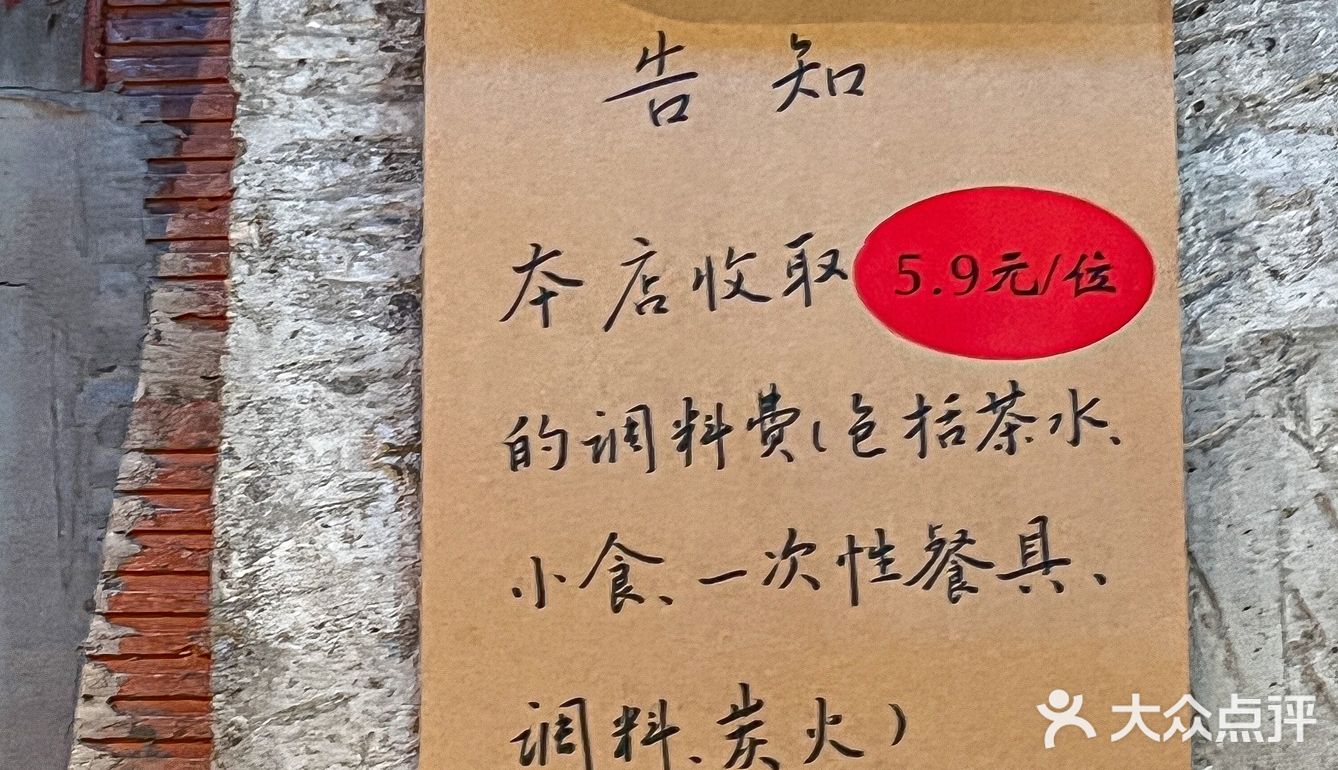 告知
本店收取5.9元/位
的调料费(包括茶水、
小食、一次性餐具、
调料、炭火)
大众点评